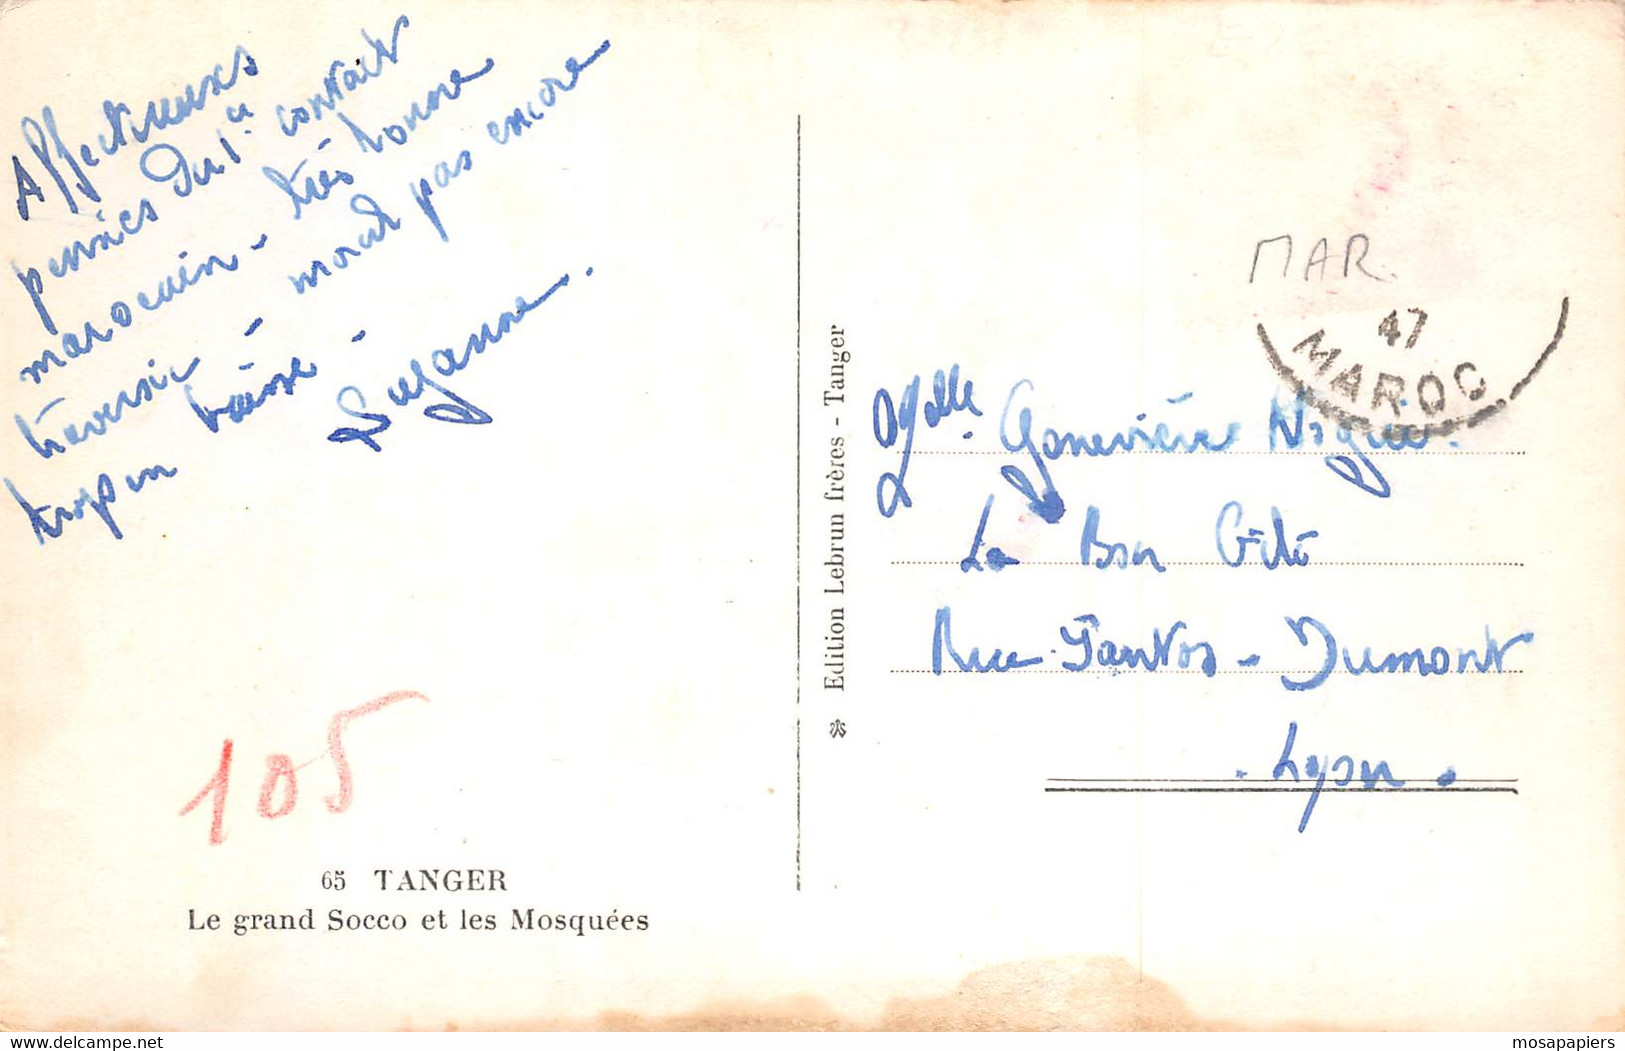 Affectueuses
pensées du 1er contact
marocain - très bonne
traversée - moral pas encore
trop en baisse -
Suzanne.
105
65 TANGER
Le grand Socco et les Mosquées
Edition Lebrun frères - Tanger
MAR.
47
MAROC
Mlle Geneviève
Le Bon Gîte
Rue Santos-Dumont
. Lyon .
https://www.delcampe.net
mosapapiers